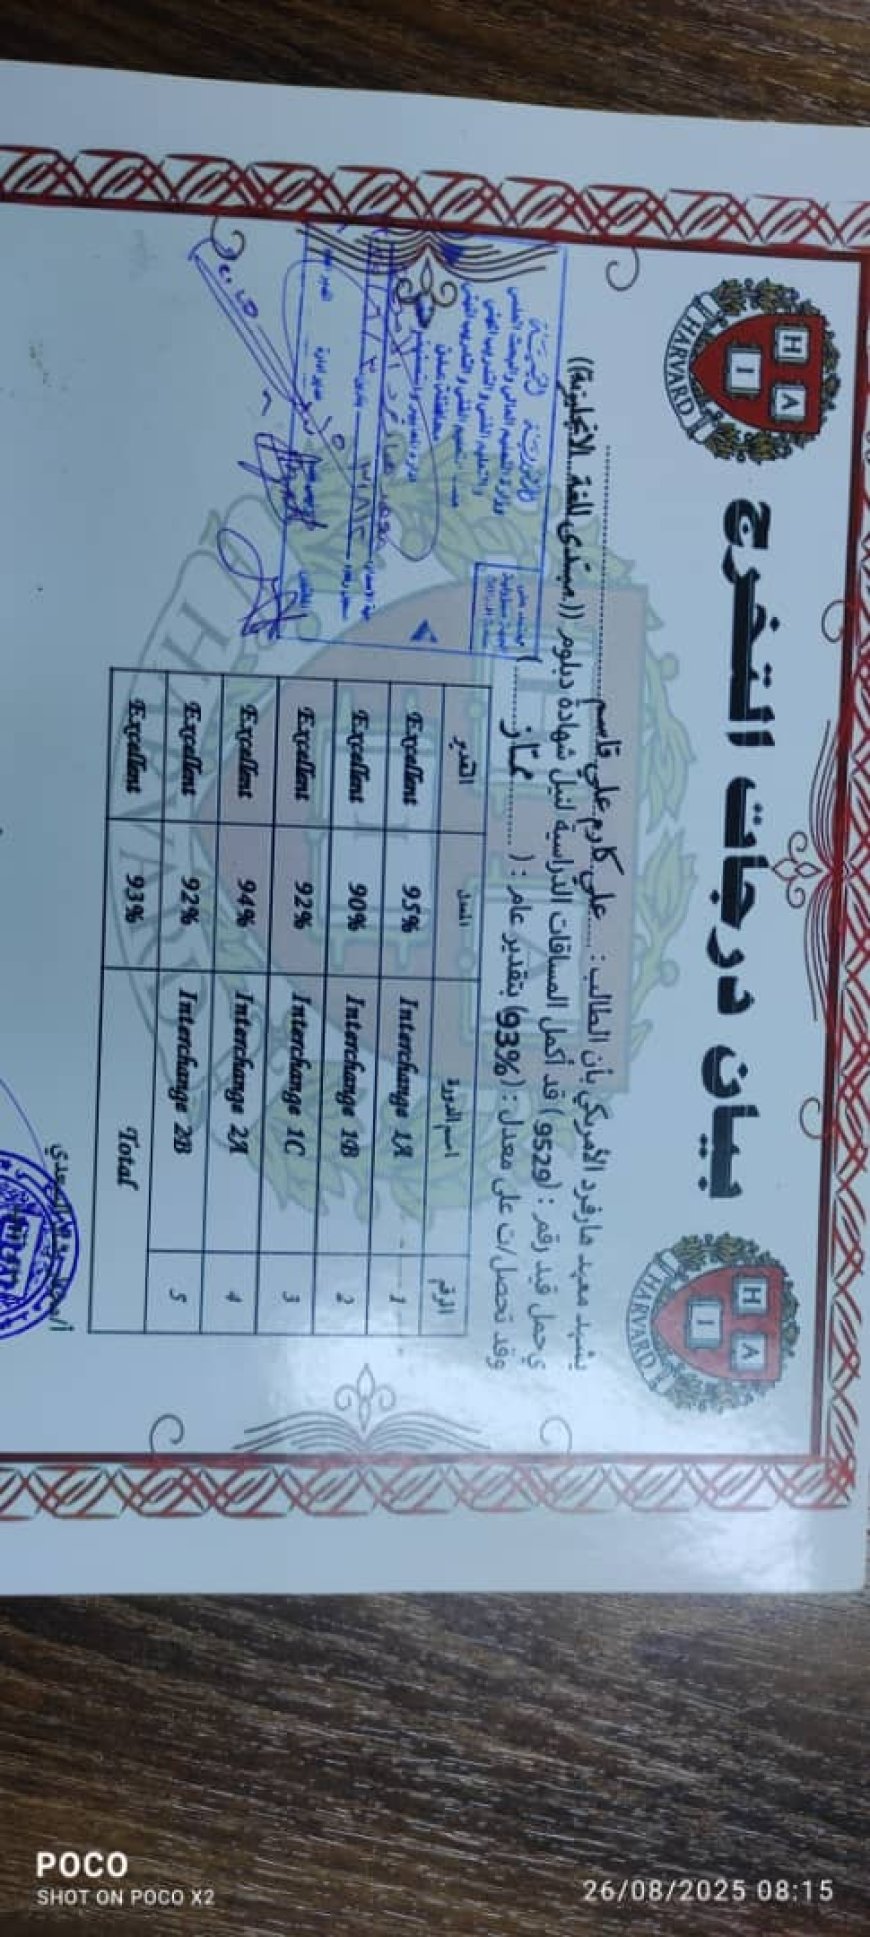 HARVARD
H A
I
HARVARD
H A
I
بيان درجات التخرج
يشهد معهد هارفرد الأمريكي بأن الطالب: علي كارم علي قاسم
ي حمل قيد رقم: (9529) قد أكمل المساقات الدراسية لنيل شهادة دبلوم ((مبتدى للغة الانجليزية))
وقد تحصل/ت على معدل: (93%) بتقدير عام: (ممتاز)
الرقم اسم الدورة المعدل التقدير
1 Interchange 1A 95% Excellent
2 Interchange 1B 90% Excellent
3 Interchange 1C 92% Excellent
4 Interchange 2A 94% Excellent
5 Interchange 2B 92% Excellent
Total 93% Excellent
HARVARD
POCO
SHOT ON POCO X2
26/08/2025 08:15